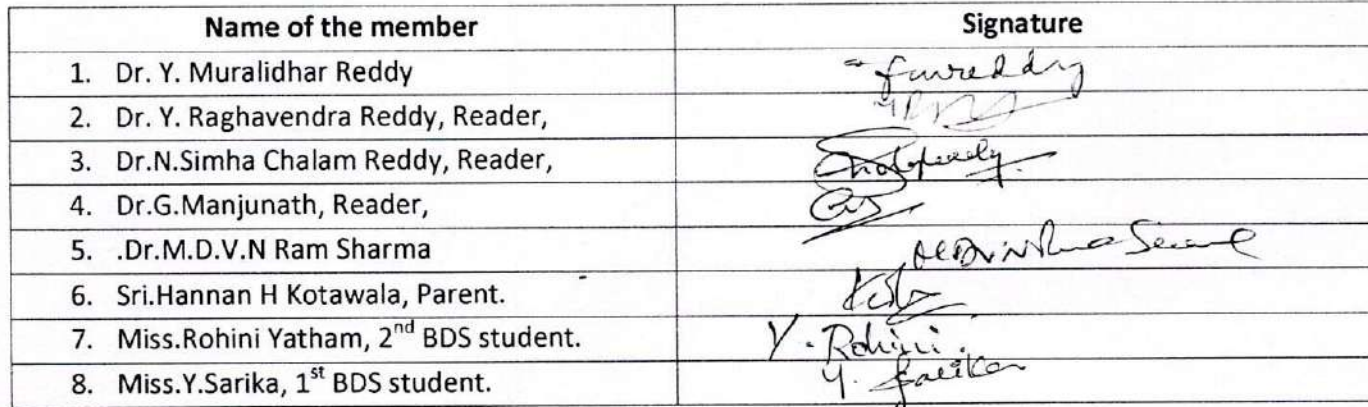 Name of the member Signature
1. Dr. Y. Muralidhar Reddy
2. Dr. Y. Raghavendra Reddy, Reader,
3. Dr.N.Simha Chalam Reddy, Reader,
4. Dr.G.Manjunath, Reader,
5. .Dr.M.D.V.N Ram Sharma
6. Sri.Hannan H Kotawala, Parent.
7. Miss.Rohini Yatham, 2nd BDS student. Y. Rohini.
8. Miss.Y.Sarika, 1st BDS student. Y. Sarika